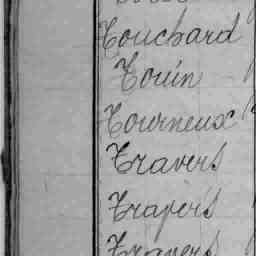 Touchard
Touin
Tourneux
Travers
Travers
Travers